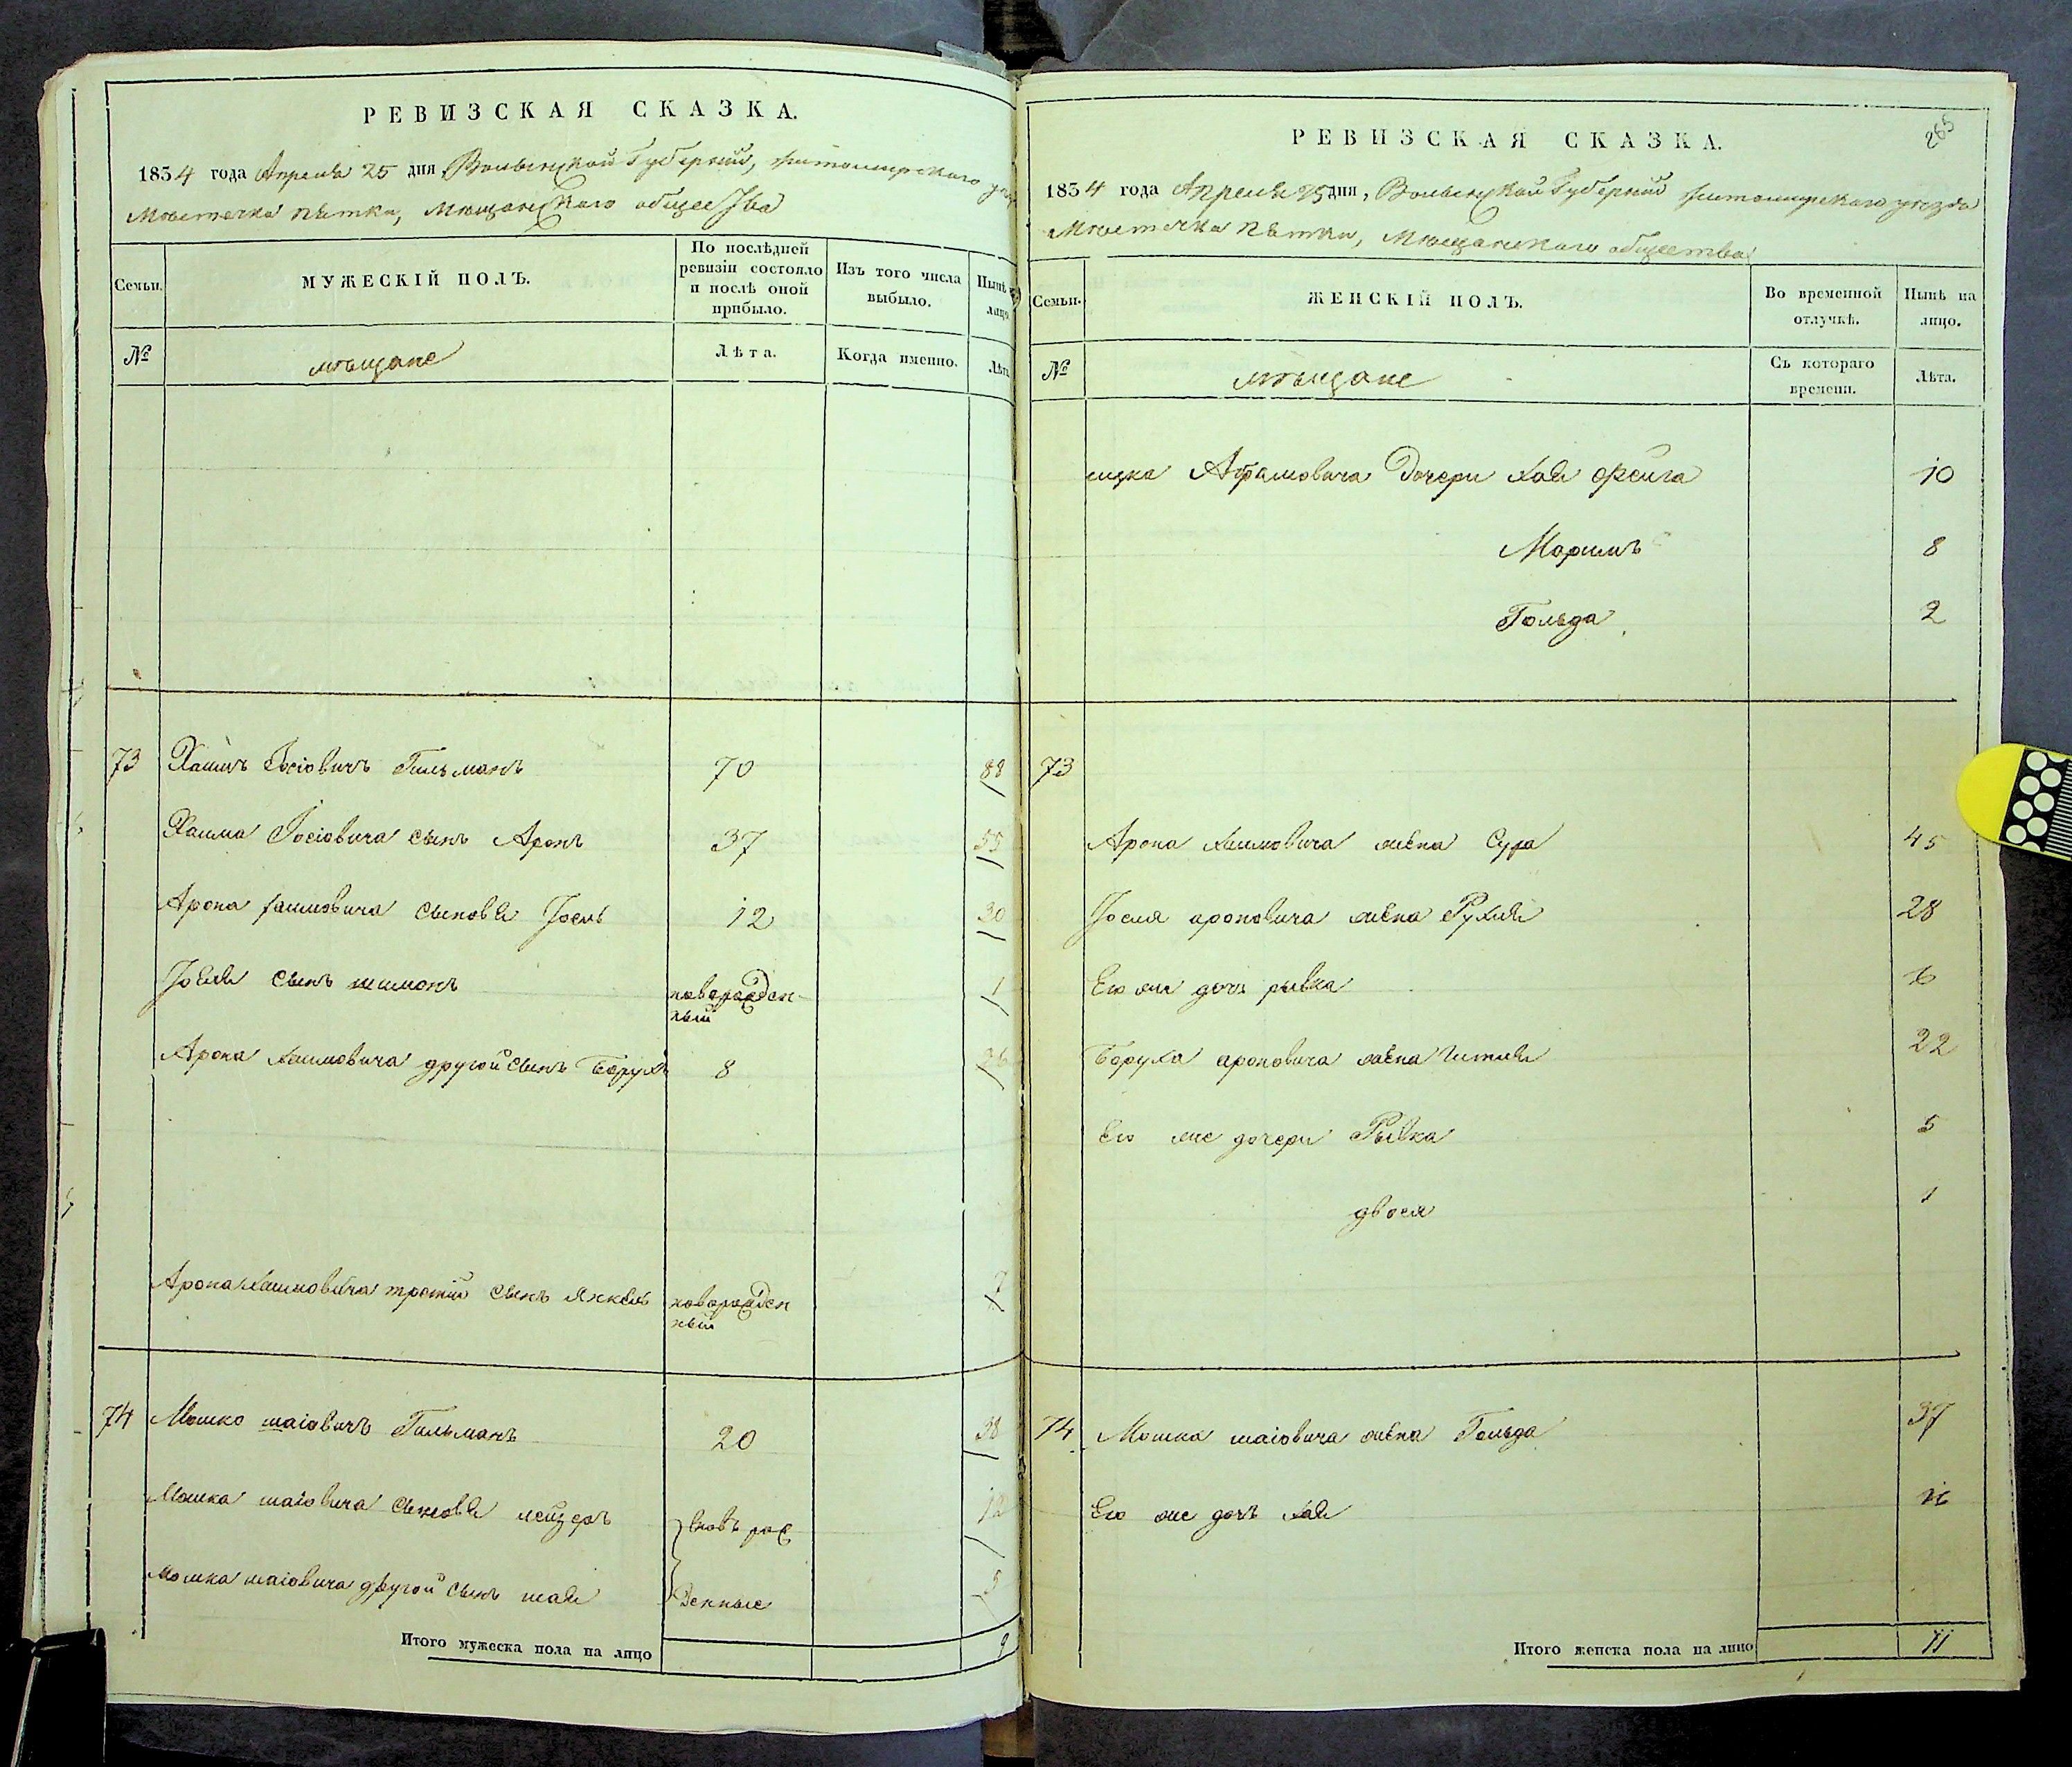 РЕВИЗСКАЯ СКАЗКА.
1834 года Апреля 25 дня Волынской Губерний, житомирского
Местечка пятки, мещанского общества
Семьи.
МУЖЕСКІЙ ПОЛЪ.
По послѣдней ревизіи состояло и послѣ оной прибыло.
Изъ того числа выбыло.
Нынѣ на лицо
№
мещане
Лѣта.
Когда именно.
Лѣта
73 Хаимъ Іосіовичъ Гильманъ 70 88
Хаима Іосіовича сынъ Аронъ 37 55
Арона хаимовича сыновя Іосль 12 30
Іосля сынъ шимонъ новорожден-ный 1
Арона хаимовича другой сынъ Борухъ 8 26
Арона хаимовича третий сынъ янкель новорожденный 7
74 Мошко шаіовичъ Гильманъ 20 38
Мошка шаіовича сыновя лейзеръ вновь рож 12
Мошка шаіовича другой сынъ шая денные 5
Итого мужеска пола на лицо 9
265
РЕВИЗСКАЯ СКАЗКА.
1834 года Апреля 25 дня, Волынской Губерний житомирского уезда
Местечка пятки, Мещанского общества
Семьи.
ЖЕНСКІЙ ПОЛЪ.
Во временной отлучкѣ.
Нынѣ на лицо.
№
мещане
Съ котораго времени.
Лѣта.
ицка Абрамовича Дочери хая фейга 10
Маримъ 8
Гольда 2
73
Арона хаимовича жена Сура 45
Іосля ароновича жена Рухля 28
Его же дочь рывка 6
Боруха ароновича жена Гитля 22
Его же дочери Рывка 5
двося 1
74 Мошка шаіовича жена Гольда 37
Его же дочь хая 16
Итого женска пола на лицо 11